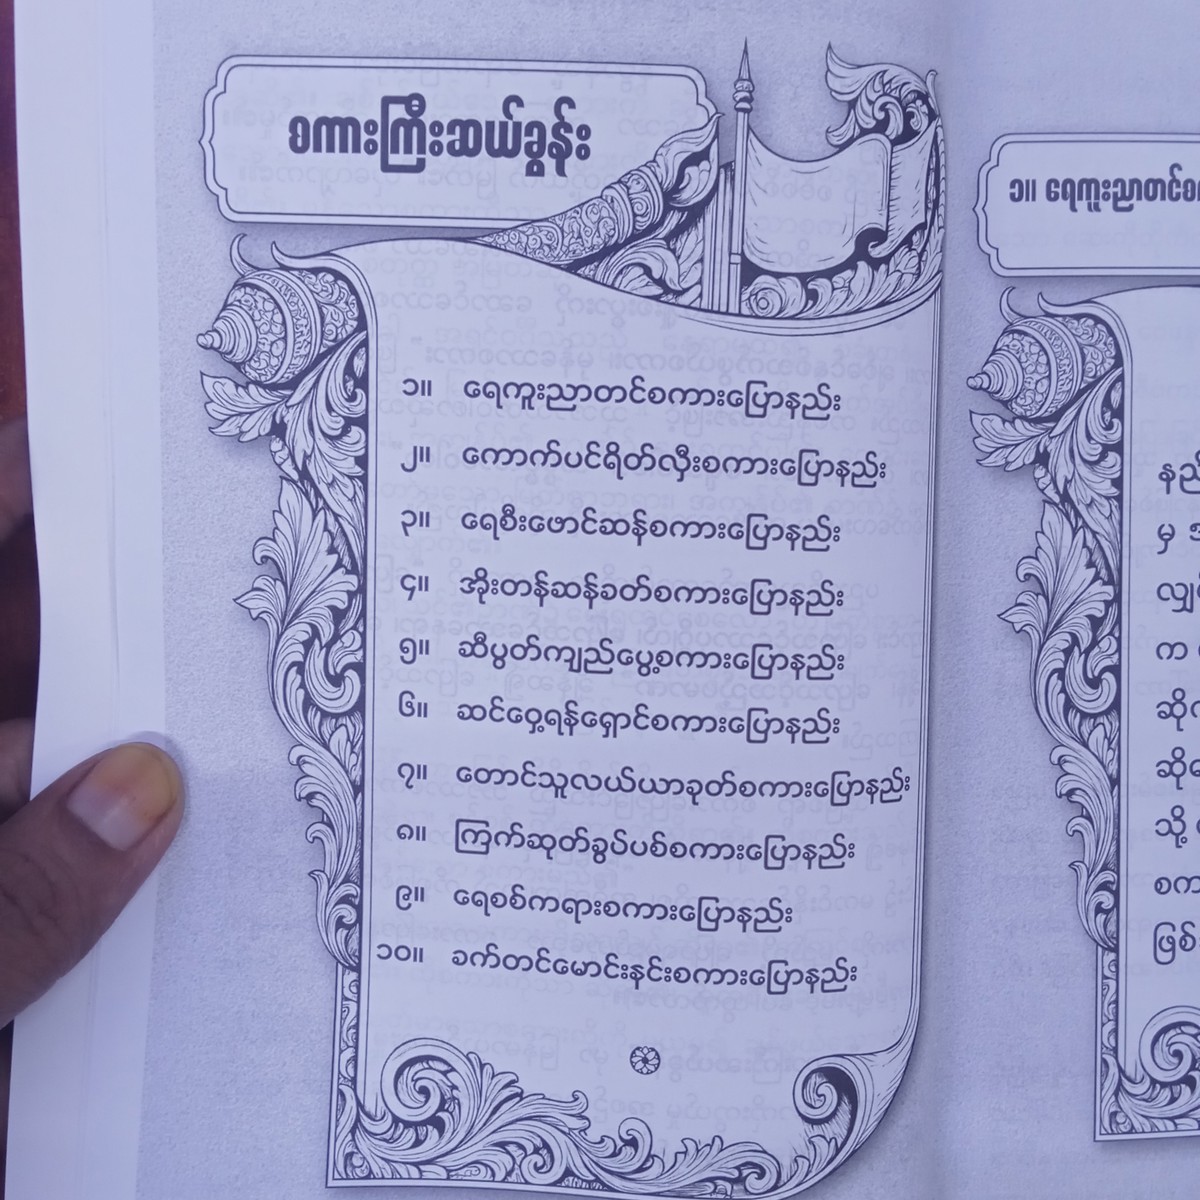 စကားကြီးဆယ်ခွန်း
၁။ ရေကူးညာတင်စကားပြောနည်း
၂။ ကောက်ပင်ရိတ်လှီးစကားပြောနည်း
၃။ ရေစီးဖောင်ဆန်စကားပြောနည်း
၄။ အိုးတန်ဆန်ခတ်စကားပြောနည်း
၅။ ဆီပွတ်ကျည်ပွေ့စကားပြောနည်း
၆။ ဆင်ဝှေ့ရန်ရှောင်စကားပြောနည်း
၇။ တောင်သူလယ်ယာခုတ်စကားပြောနည်း
၈။ ကြက်ဆုတ်ခွပ်ပစ်စကားပြောနည်း
၉။ ရေစစ်ကရားစကားပြောနည်း
၁၀။ ခက်တင်မောင်းနင်းစကားပြောနည်း
၁။ ရေကူးညာတင်
မှ
က
သို့